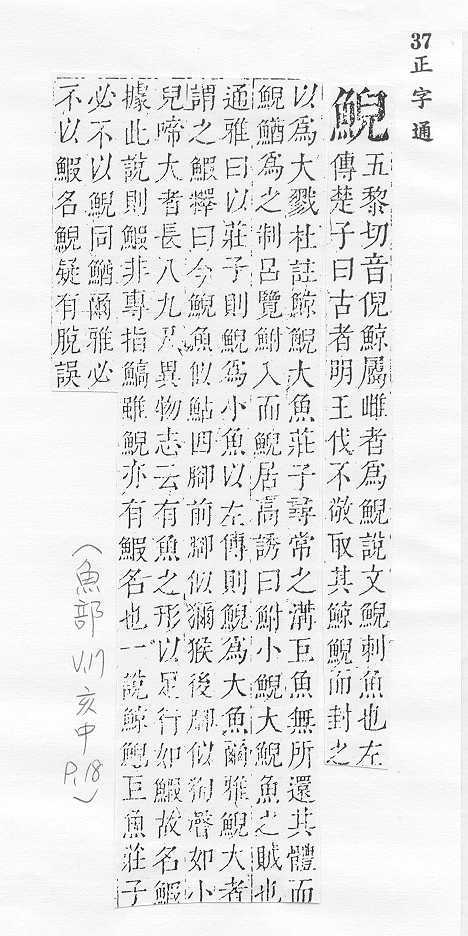 37 正字通
鯢
五黎切音倪鯨屬雌者爲鯢說文鯢刺魚也左
傳楚子曰古者明王伐不敬取其鯨鯢而封之
以爲大戮杜註鯨鯢大魚莊子尋常之溝巨魚無所還其體而
鯢鰌爲之制呂覽鮒入而鯢居高誘曰鮒小鯢大鯢魚之賊也
通雅曰以莊子則鯢爲小魚以左傳則鯢爲大魚爾雅鯢大者
謂之鰕釋曰今鯢魚似鮎四腳前腳似獼猴後腳似狗聲如小
兒啼大者長八九尺異物志云有魚之形以足行如鰕故名鰕
據此說則鰕非專指鰝雖鯢亦有鰕名也一說鯨鯢巨魚莊子
必不以鯢同鰌爾雅必
不以鰕名鯢疑有脫誤
(魚部 V.17 亥中 P.18)